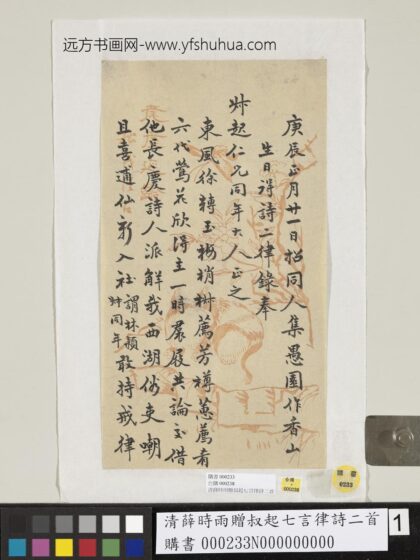 远方书画网-www.yfshuhua.com
庚辰正月廿一日招同人集愚園作香山
生日得詩二律錄奉
尗起仁兄同年大人正之
東風徐轉玉梅梢椒薦芳樽蕙薦肴
六代鶯花欣得主一時帬屐共論交借
他長慶詩人派解我西湖俗吏嘲
且喜逋仙新入社謂林穎尗同年敢持戒律
購書 000233
台購 000238
清薛時雨贈叔起七言律詩二首
000238
0233
清薛時雨贈叔起七言律詩二首
購書 000233N000000000
1